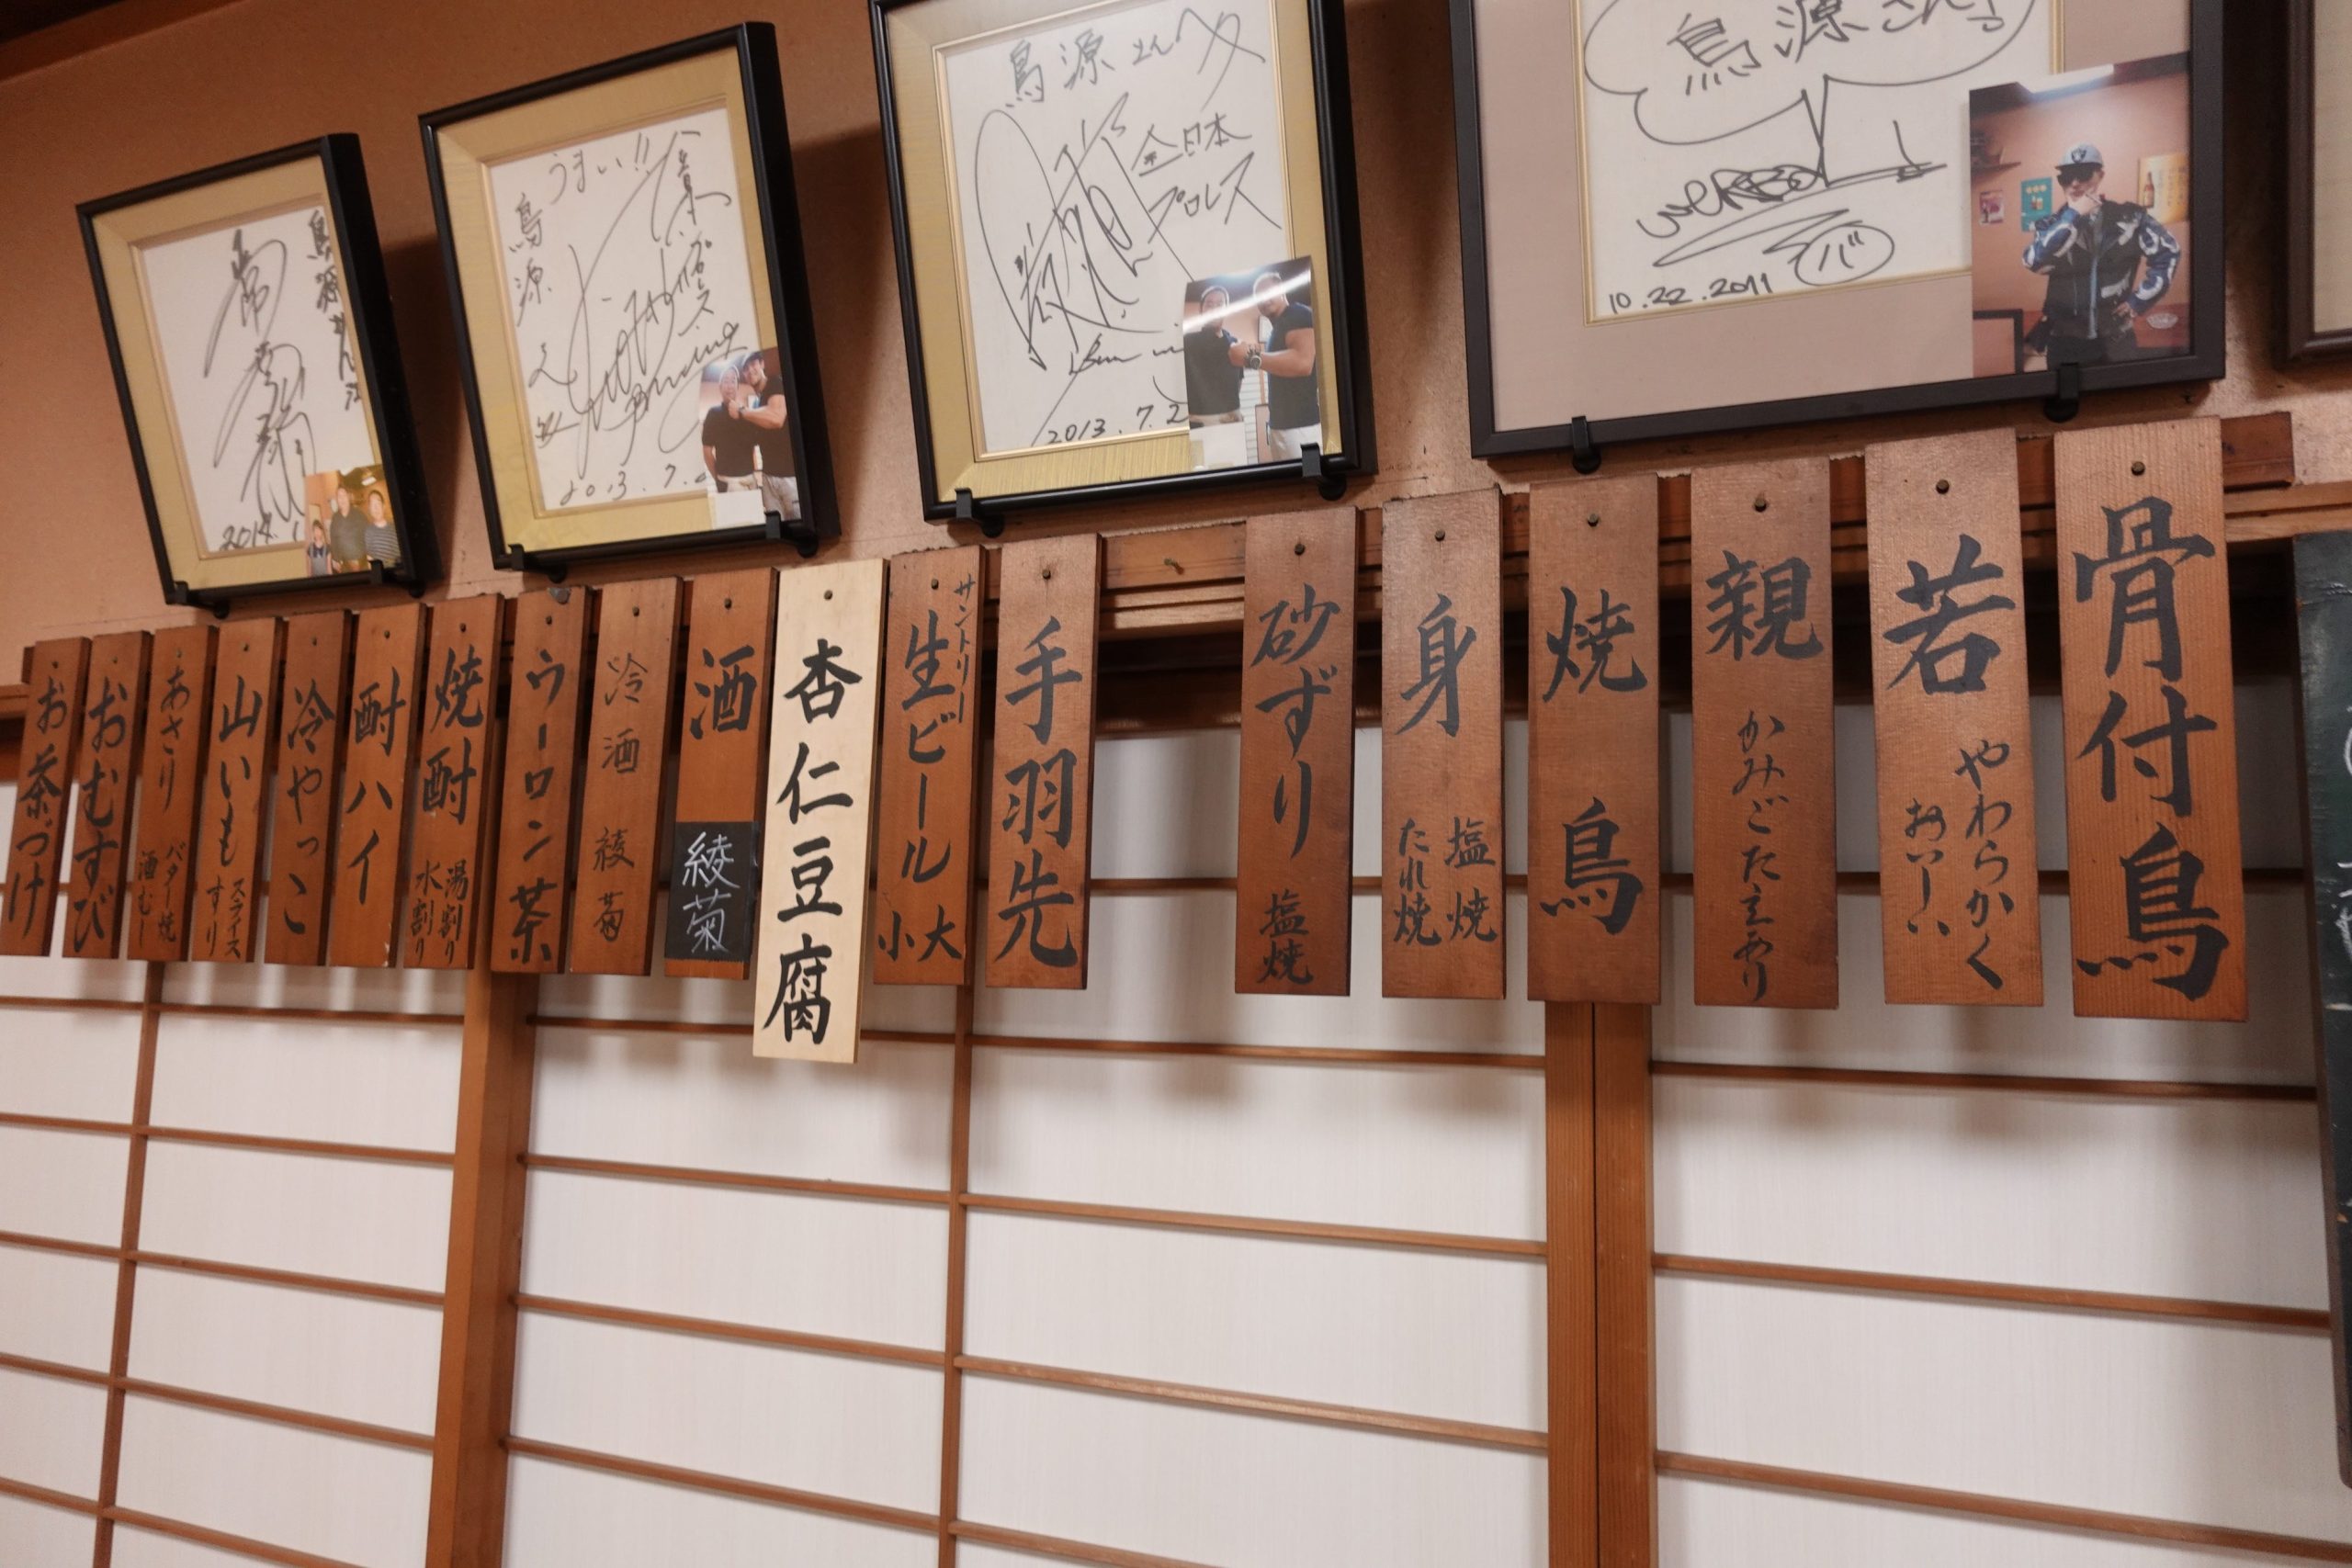 鳥源さん江
2014.1
うまい!!
鳥源さん江
2013.7.2
鳥源さんへ
全日本
プロレス
2013.7.2
鳥源さんへ
10.22.2011
骨付鳥
若
やわらかく
おいしい
親
かみごたえあり
焼鳥
身
塩焼
たれ焼
砂ずり
塩焼
手羽先
サントリー
生ビール
大
小
杏仁豆腐
酒
綾菊
冷酒
綾菊
ウーロン茶
焼酎
湯割り
水割り
酎ハイ
冷やっこ
山いも
スライス
すり
あさり
バター焼
酒むし
おむすび
お茶づけ